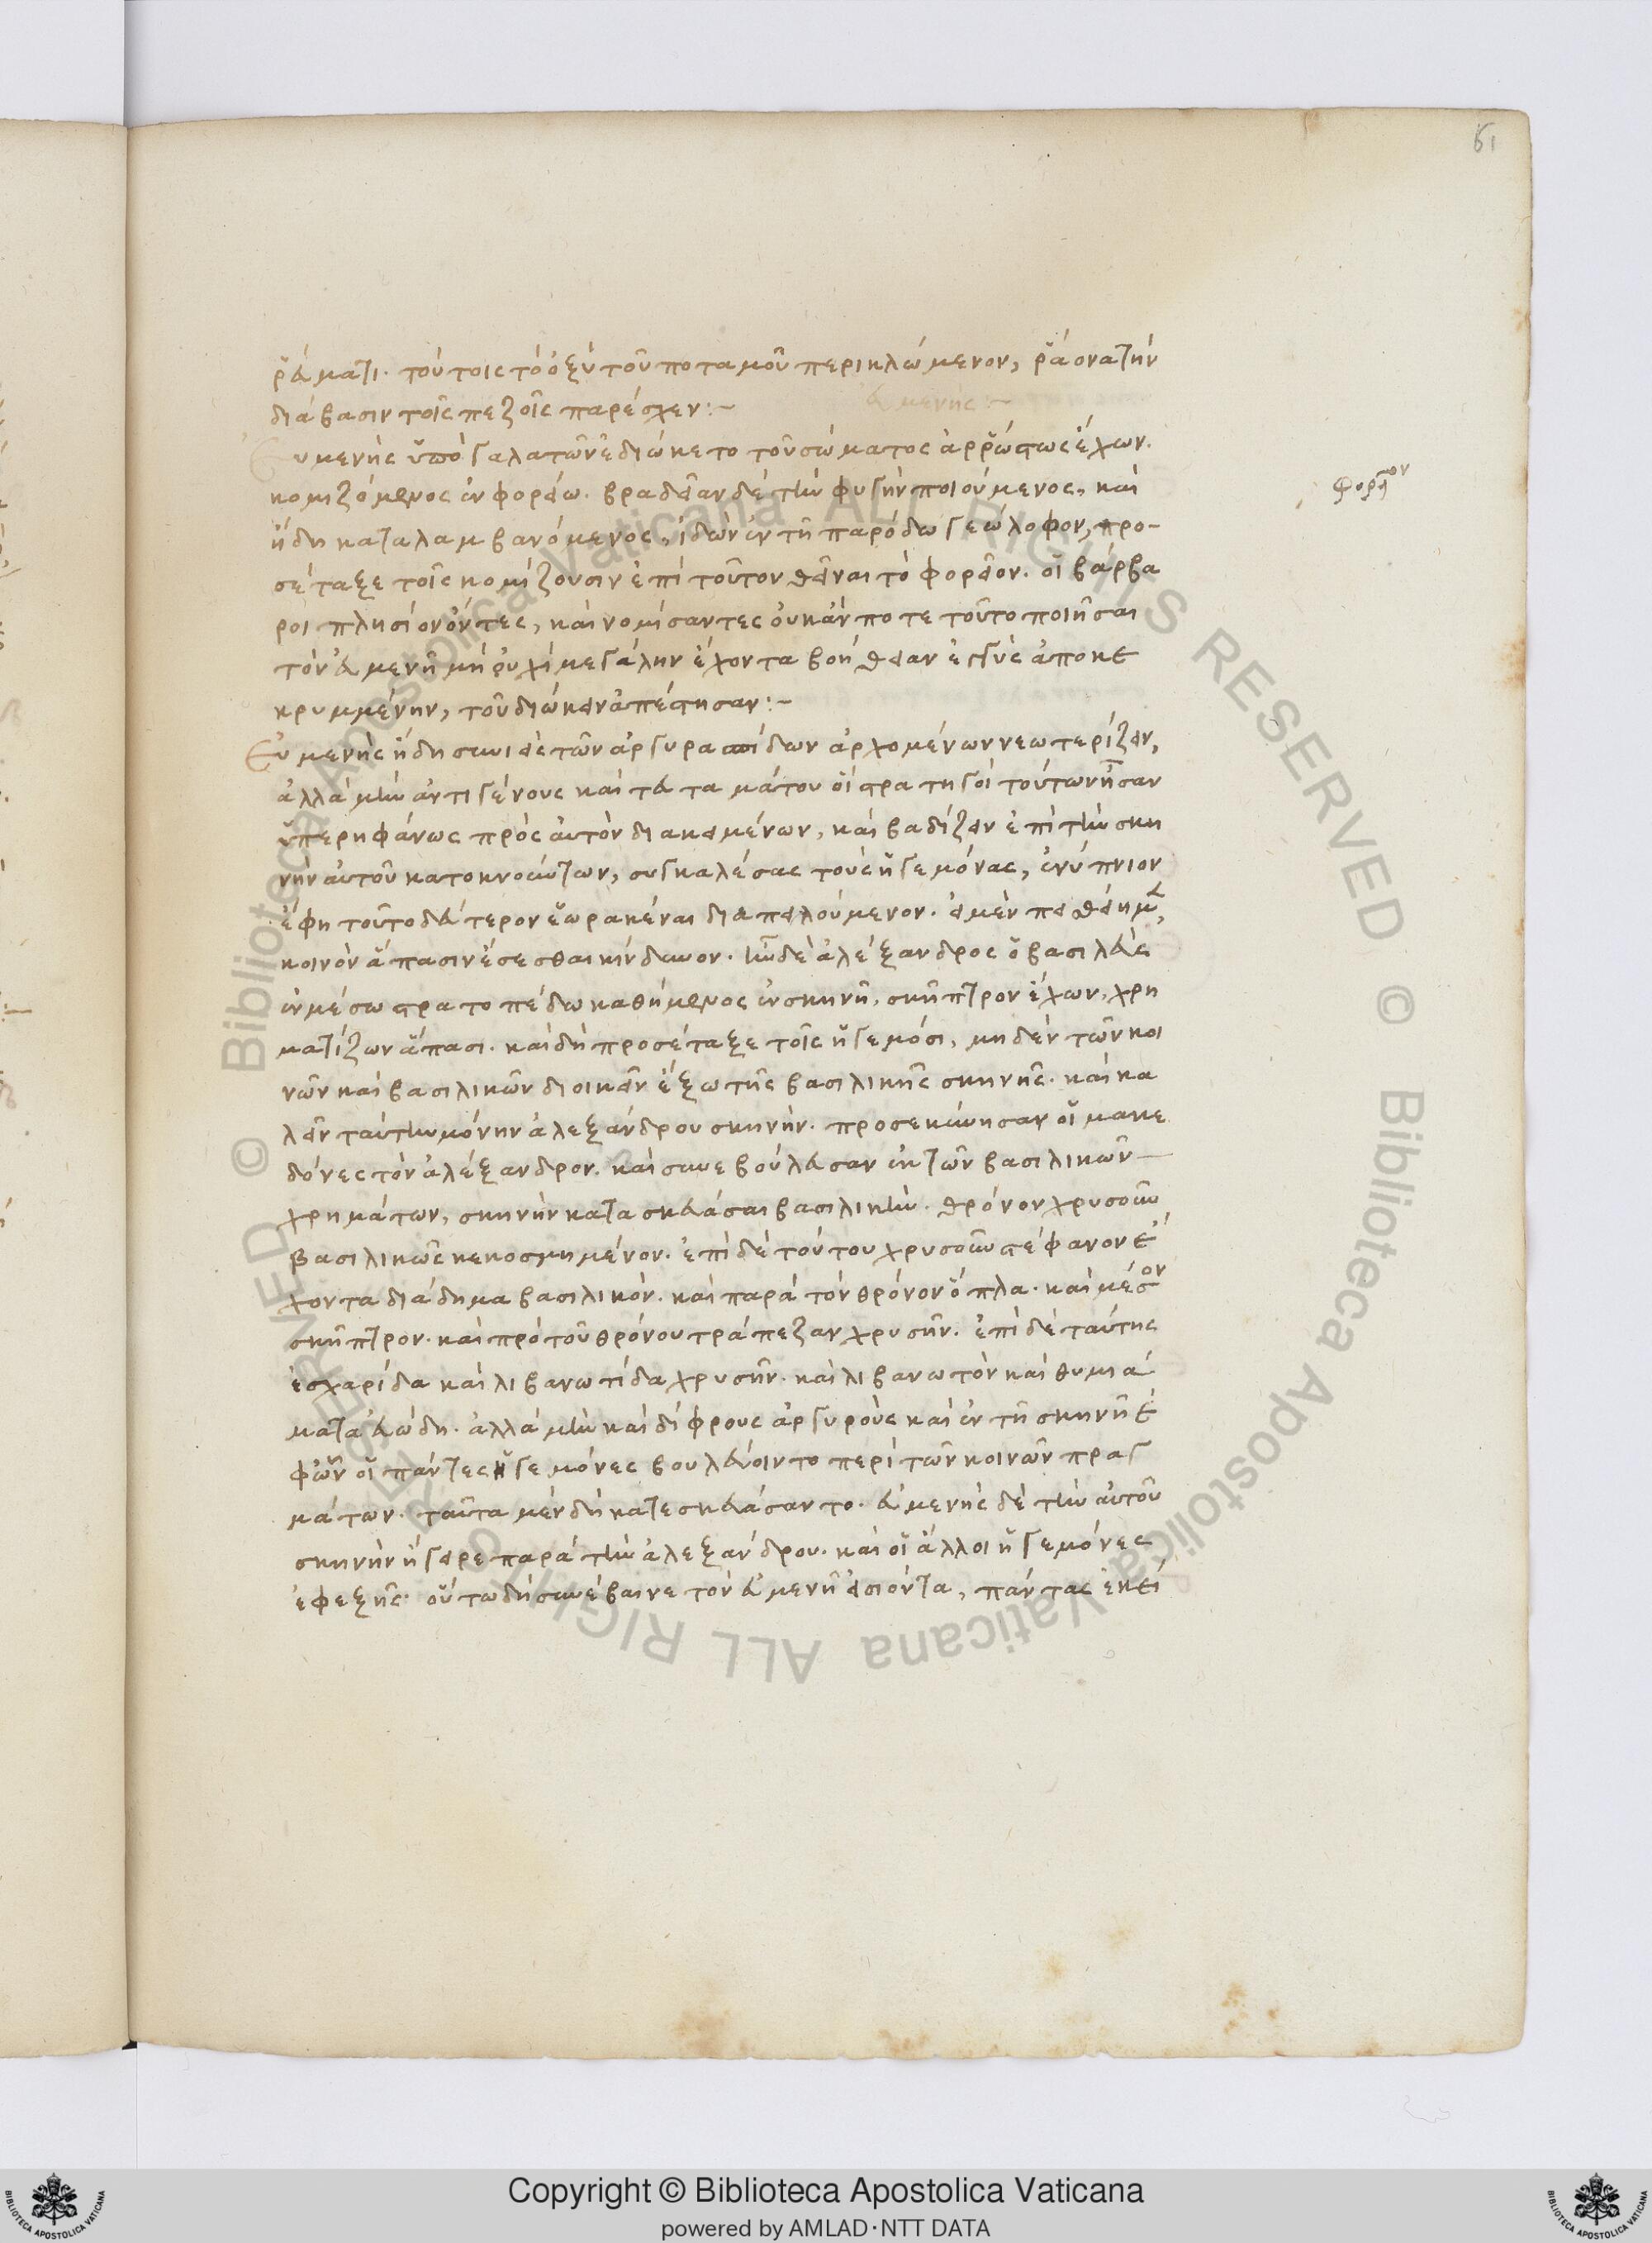 61
ῥεύματι. τούτοις τὸ ὀξὺ τοῦ ποταμοῦ περικλώμενον, ῥάονα τὴν
διάβασιν τοῖς πεζοῖς παρέσχεν:-
εὐμενής:-
Εὐμενὴς ὑπὸ γαλατῶν ἐδιώκετο τοῦ σώματος ἀρρώστως ἔχων.
κομιζόμενος ἐν φορείω. βραδεῖαν δὲ τὴν φυγὴν ποιούμενος, καὶ
ἤδη καταλαμβανόμενος, ἰδὼν ἐν τῇ παρόδω γεώλοφον, προ-
σέταξε τοῖς κομίζουσιν ἐπὶ τοῦτον θεῖναι τὸ φορεῖον. οἱ βάρβα
ροι πλησίον ὄντες, καὶ νομίσαντες οὐκ ἄν ποτε τοῦτο ποιῆσαι
τὸν εὐμενῆ μὴ οὐχὶ μεγάλην ἔχοντα βοήθειαν ἐγγὺς ἀποκε
κρυμμένην, τοῦ διώκειν ἀπέστησαν:-
φορεῖον
Εὐμενὴς ἤδη συνιδὲ τῶν ἀργυρασπίδων ἀρχομένων νεωτερίζειν,
ἀλλὰ μὴν ἀντιγένους καὶ τευταμάτου οἳ στρατηγοὶ τούτων ἦσαν
ὑπερηφάνως πρὸς αὐτὸν διακειμένων, καὶ βαδίζειν ἐπὶ τὴν σκη
νὴν αὐτοῦ κατοκνούντων, συγκαλέσας τοὺς ἡγεμόνας, ἐνύπνιον
ἔφη τοῦτο δεύτερον ἑωρακέναι διαπειλούμενον. εἰ μὲν πειθείημεν,
κοινὸν ἅπασιν ἔσεσθαι κίνδυνον. ἦν δὲ ἀλέξανδρος ὁ βασιλεὺς
ἐν μέσω στρατοπέδω καθήμενος ἐν σκηνῇ, σκῆπτρον ἔχων, χρη
ματίζων ἅπασι. καὶ δὴ προσέταξε τοῖς ἡγεμόσι, μηδὲν τῶν κοι
νῶν καὶ βασιλικῶν διοικεῖν ἔξω τῆς βασιλικῆς σκηνῆς. καὶ κα
λεῖν ταύτην μόνην ἀλεξάνδρου σκηνήν. προσεκύνησαν οἱ μακε
δόνες τὸν ἀλέξανδρον. καὶ συνεβούλευσαν ἐκ τῶν βασιλικῶν
χρημάτων, σκηνὴν κατασκευάσαι βασιλικὴν. θρόνον χρυσοῦν
βασιλικῶς κεκοσμημένον. ἐπὶ δὲ τούτου χρυσοῦν στέφανον ἔ
χοντα διάδημα βασιλικόν. καὶ παρὰ τὸν θρόνον ὅπλα. καὶ μέσον
σκῆπτρον. καὶ πρὸ τοῦ θρόνου τράπεζαν χρυσῆν. ἐπὶ δὲ ταύτης
ἐσχαρίδα καὶ λιβανωτίδα χρυσῆν. καὶ λιβανωτὸν καὶ θυμιά
ματα εὐώδη. ἀλλὰ μὴν καὶ δίφρους ἀργυροὺς καὶ ἐν τῇ σκηνῇ ἐ
φ' ὧν οἱ πάντες ἡγεμόνες βουλεύοιντο περὶ τῶν κοινῶν πραγ
μάτων. ταῦτα μὲν δὴ κατεσκευάσαντο. εὐμενὴς δὲ τὴν αὐτοῦ
σκηνὴν ἤγειρε παρὰ τὴν ἀλεξάνδρου. καὶ οἱ ἄλλοι ἡγεμόνες
ἐφεξῆς. οὕτω δὴ συνέβαινε τὸν εὐμενῆ εἰσιόντα, πάντας ἐκεῖ